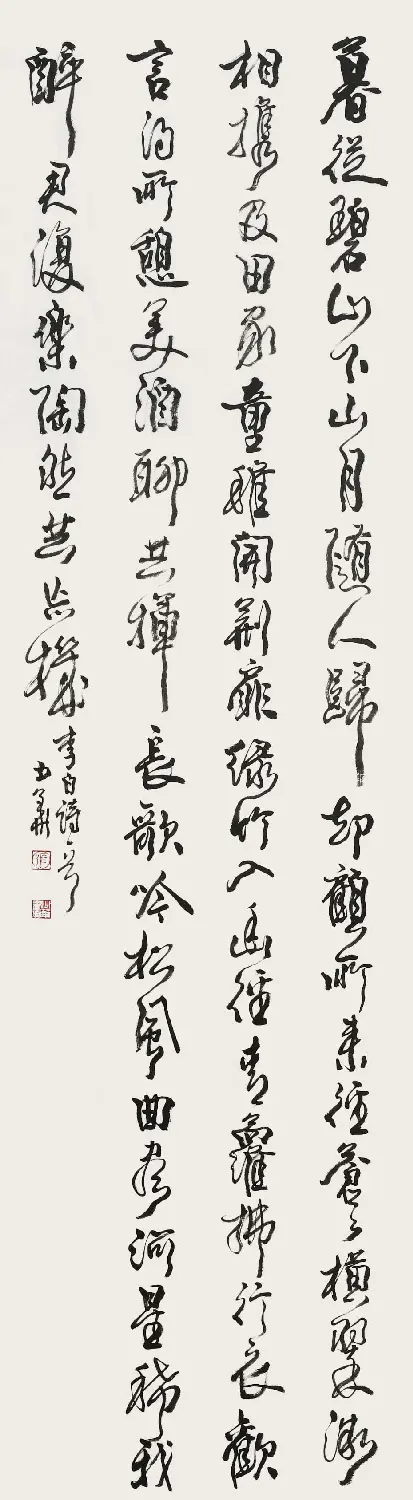 暮從碧山下山月隨人歸却顧所来徑蒼々橫翠微
相攜及田家童稚開荆扉綠竹入幽徑青蘿拂行衣歡
言得所憩美酒聊共揮長歌吟松風曲盡河星稀我
醉君復樂陶然共忘機
李白詩一首